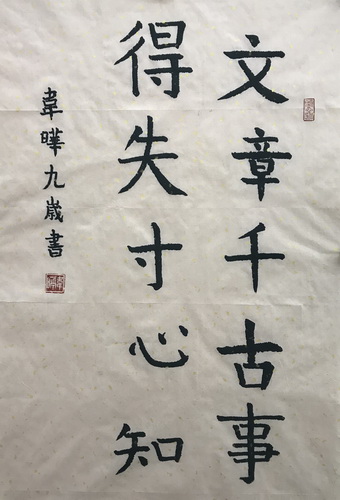 文章千古事
得失寸心知
韋曄九歲書